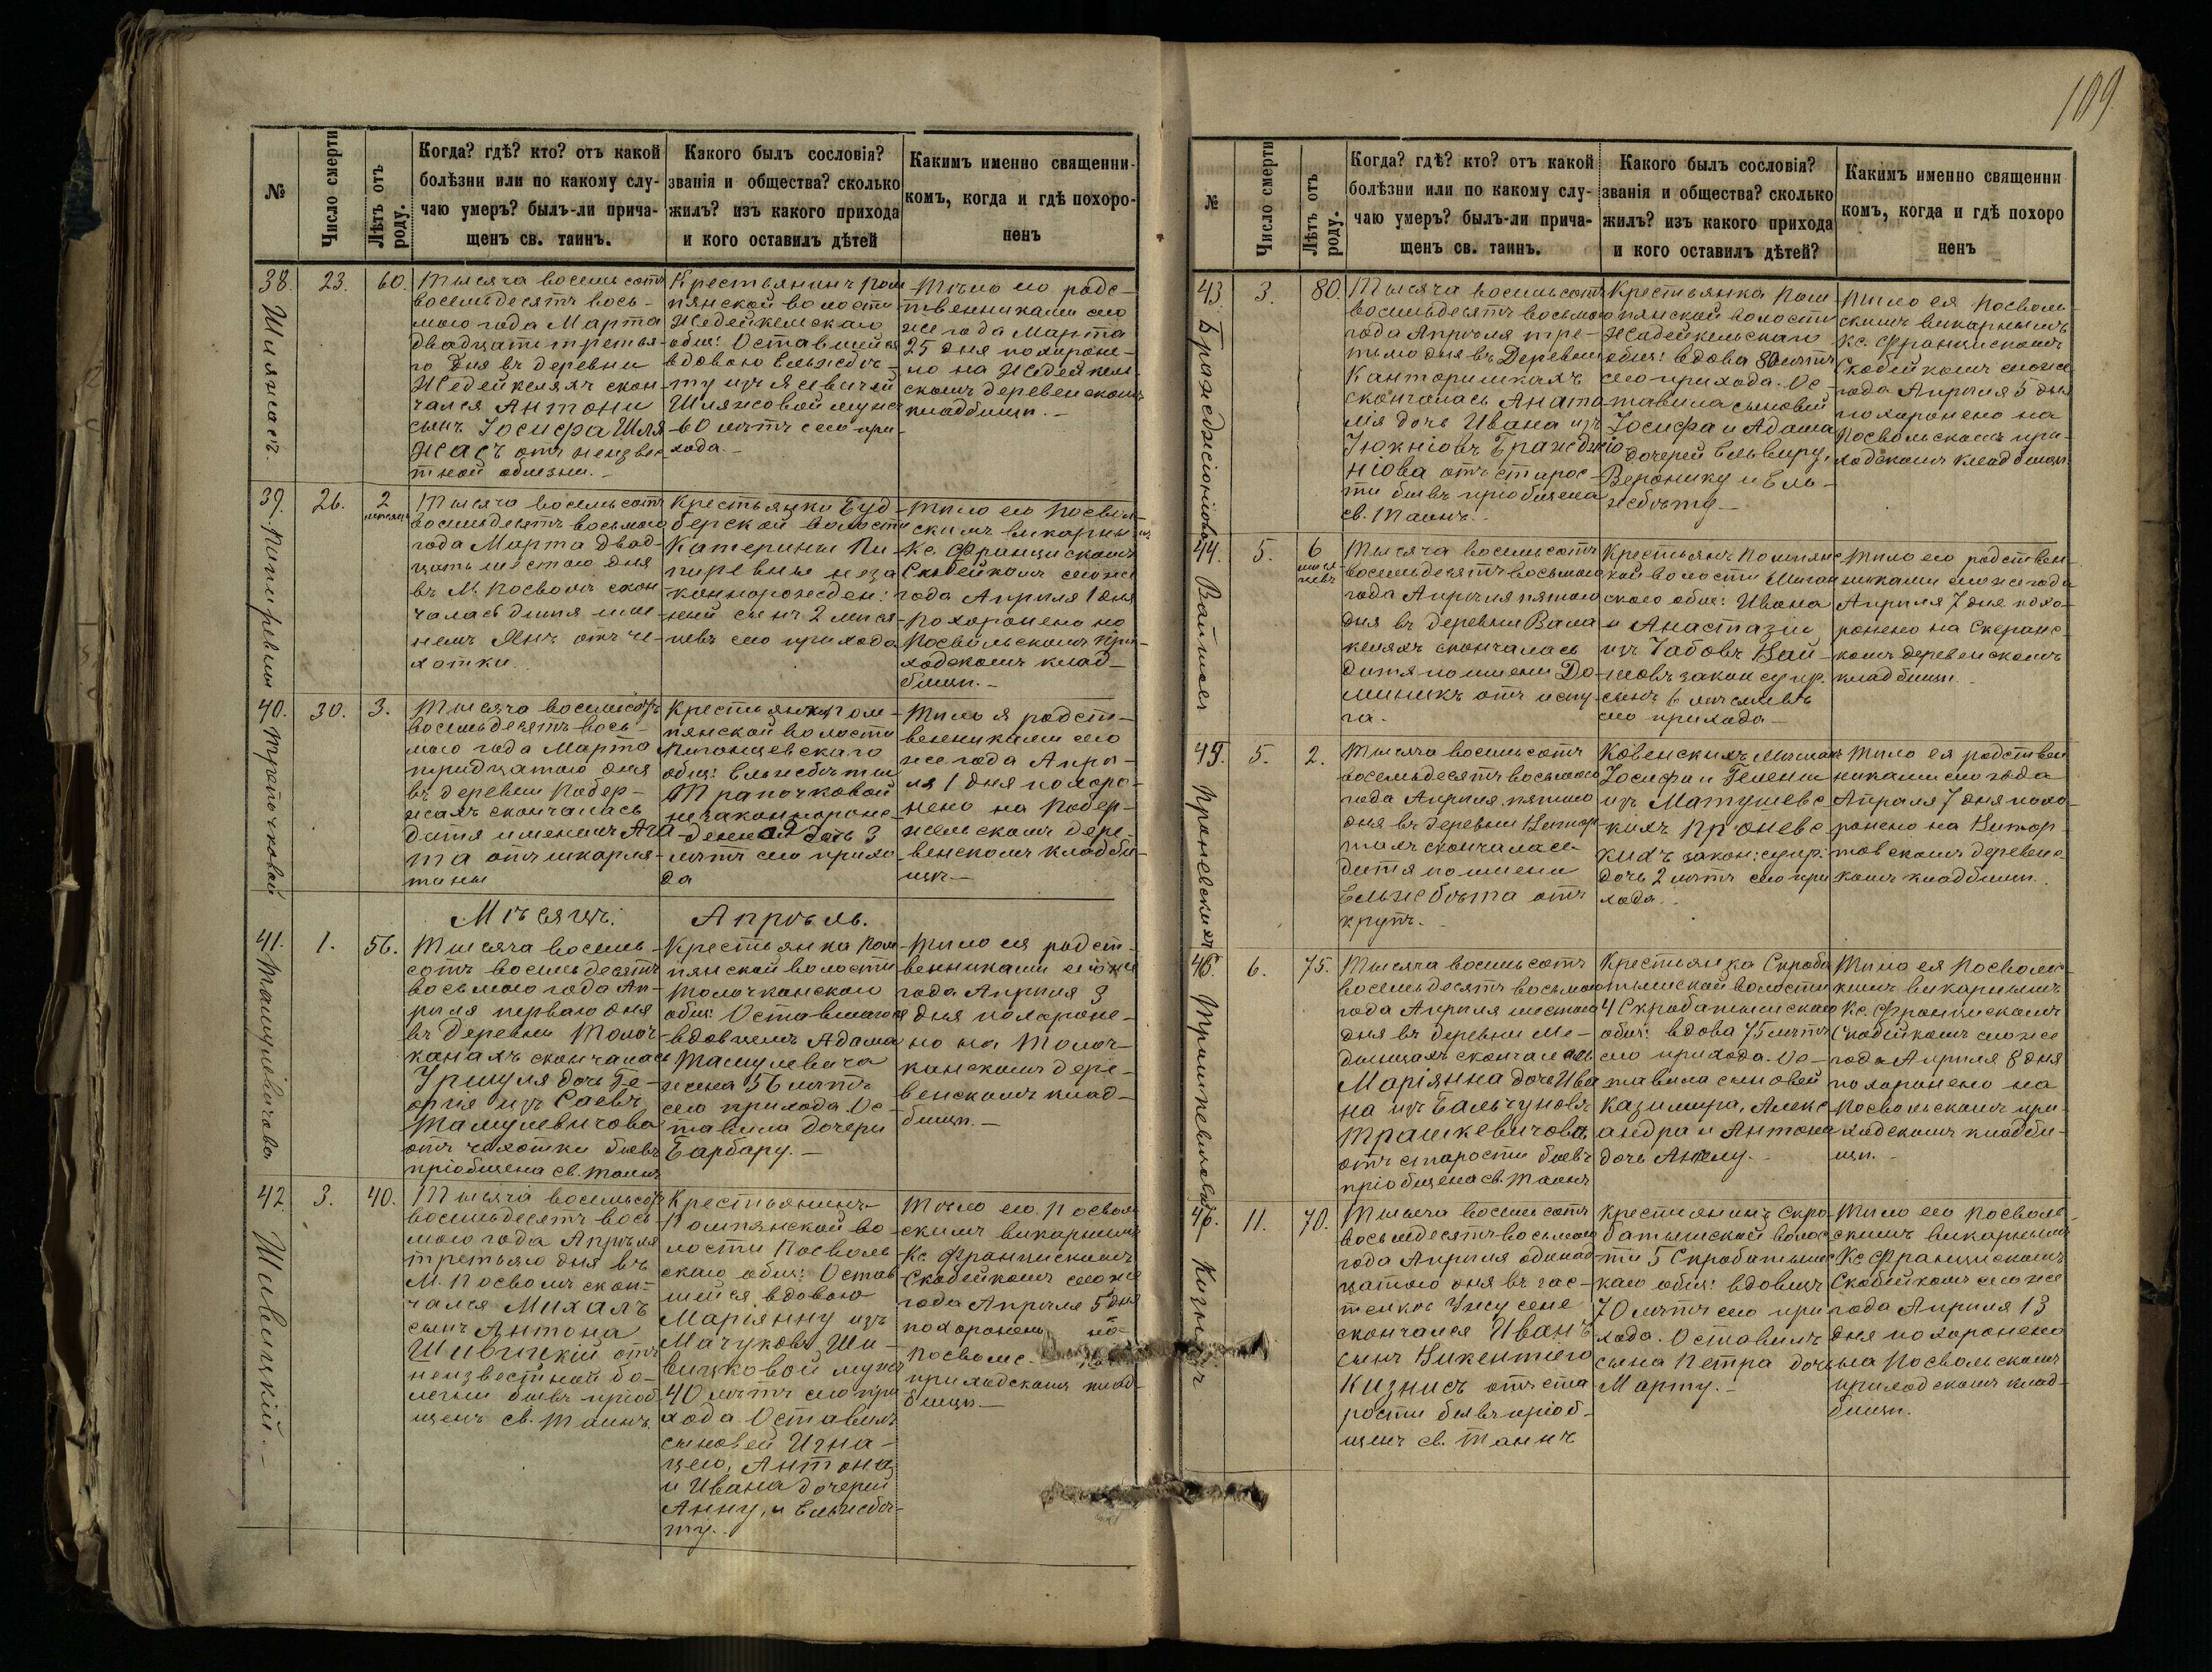 109
№
Число смерти
Лѣтъ отъ
роду.
Когда? гдѣ? кто? отъ какой
болѣзни или по какому слу-
чаю умеръ? былъ-ли прича-
щенъ св. таинъ.
Какого былъ сословія?
званія и общества? сколько
жилъ? изъ какого прихода
и кого оставилъ дѣтей
Какимъ именно священни-
комъ, когда и гдѣ похоро-
ненъ
38.
Шляжасъ.
23.
60.
Тысяча восемьсотъ
восемьдесятъ вось-
мого года Марта
двадцати третья-
го дня въ деревни
Жедейкеляхъ скон-
чался Антони
сынъ Іосифа Шля
жасъ отъ неизвес
тной облезни.-
Крестьянинъ Пом
пянской волости
Жедейкельскаго
общ: Оставшейся
вдовою Ельжебъ-
ту изъ Ясвичей
Шляжсовой мужъ
60 лѣтъ сего при
хода.-
Тѣло его родс-
твенниками сего
же года Марта
25 дня похороне-
но на Жедейкел
скомъ деревенскомъ
кладбищѣ.-
39.
26.
2
Тысяча восемьсотъ
восемьдесятъ восьмаго
года Марта двад-
цать шестого дня
въ М. Посволѣ скон
чалась дитя име-
немъ Янъ отъ че-
хотки.
Крестьянки Буд-
берской волости
Катерины Пи-
пиревны неза
коннорожден:
ней сынъ 2 меся-
цевъ сего прихода
Тѣло его Посволь-
скимъ викарнымъ
Кс. Францискомъ
Скобейкомъ сегоже
года Апрѣля 1 дня
похоронено на
Посвольскомъ при-
ходскомъ клад-
бищѣ.-
40.
Трапочковой
30.
3.
Тысяча восемьсотъ
восемьдесятъ вось-
мого года Марта
тридцатого дня
въ деревни Подер-
жаяхъ скончалась
дитя именемъ Ага
та отъ шкарля-
тины
Крестьянки Пом-
пянской волости
общ: Ельжебѣты
Трапочковой
незаконнорож-
денная дочь 3
лѣтъ сего прихо
да
Тѣло я родст-
венниками сего
же года Апрѣ-
ля 1 дня похоро-
нено на Подер-
жескомъ дере-
венскомъ кладби-
щѣ.-
Мѣсяцъ: Апрѣль.
41.
Ташулевичова
1.
56.
Тысяча восемь-
сотъ восемьдесятъ
восьмого года Ап-
рѣля перваго дня
въ деревни Толоч-
канахъ скончалась
Уршуля дочь Ге-
оргія изъ Саевъ
Ташулевичова
отъ чахотки бывъ
пріобщена св. таинъ
Крестьянка Пом
пянской волости
Толочканского
общ: Оставшаюся
вдовцемъ Адама
Ташулевича
жена 56 лѣтъ
сего прихода. Ос-
тавила дочери
Барбару.-
Тѣло ея родст-
венниками сегоже
года Апрѣля 3
дня похороне-
но на Толоч-
канскомъ дере-
венскомъ клад-
бищѣ.-
42.
Шивицкій.-
3.
40.
Тысяча восемьсотъ
восемьдесятъ вось
мого года Апрѣля
третьяго дня въ
М. Посволѣ скон-
чался Михалъ
сынъ Антона
Шивицкій отъ
неизвестной бо-
лезни бывъ пріоб
щенъ св. Таинъ.
Крестьянинъ
Помпянской во
лости Посволь-
скаго общ: Остав
шейся вдовою
Маріянну изъ
Мачуковъ Ши-
вицковой мужъ
40 лѣтъ сего при
хода. Оставилъ
сыновей Игна-
цего, Антона
и Ивана дочерей
Анну, и Ельжебѣ-
ту.-
Тѣло его Посволь
скимъ викарнымъ
Кс. Францискомъ
Скобейкомъ сегоже
года Апрѣля 5 дня
похоронены на
Посвольс-
приходскомъ клад-
бищѣ.-
№
Число смерти
Лѣтъ отъ
роду.
Когда? гдѣ? кто? отъ какой
болѣзни или по какому слу-
чаю умеръ? былъ-ли прича-
щенъ св. таинъ.
Какого былъ сословія?
званія и общества? сколько
жилъ? изъ какого прихода
и кого оставилъ дѣтей?
Какимъ именно священни
комъ, когда и гдѣ похоро
ненъ
43.
3.
80.
Тысяча восемьсотъ
восемьдесятъ восьмого
года Апрѣля тре-
тьяго дня въ Деревни
Канторишкахъ
скончалась Анаста
зія дочь Ивана изъ
отъ старос-
ти бывъ пріобщена
св. Таинъ.-
Крестьянка Пом
пянской волости
Жадейкельскаго
общ: вдова 80 лѣтъ
сего прихода. Ос-
тавила сыновей
Іосифа и Адама
дочерей Ельвиру,
Веронику и Ель-
жебѣту.-
Тѣло ея Посволь-
скимъ викарнымъ
Кс. Францискомъ
Скобейкомъ сегоже
года Апрѣля 5 дня
похоронено на
Посвольскомъ при-
ходскомъ кладбищѣ
44.
5.
6
Тысяча восемьсотъ
восемьдесятъ восьмого
года Апрѣля пятого
дня въ деревни Вала
келяхъ скончалась
дитя по имени До-
миникъ отъ испу-
га.
Крестьянъ Помпянс
кой волости
ского общ: Ивана
и Анастазіи
изъ
закон супр.
сынъ 6 месяцевъ
сего прихода-
Тѣло его родствен-
никами сегоже года
Апрѣля 7 дня похо-
ронено на
комъ деревенскомъ
кладбищѣ.
45.
Проневскихъ
5.
2.
Тысяча восемьсотъ
восемьдесятъ восьмого
года Апрѣля пятого
дня въ деревни
скончалась
дитя по имени
Ельжебѣта отъ
крупъ.-
Ковенскихъ Мѣщанъ
Іосифа и Гелены
изъ Матушевс
кихъ Проневс
кихъ закон: супр:
дочь 2 лѣтъ сего при
хода.
Тѣло ея родствен
никами сего года
Апрѣля 7 дня похо-
ронено на
деревенс
комъ кладбищѣ.
46.
6.
75.
Тысяча восемьсотъ
восемьдесятъ восьмого
года Апрѣля шестого
дня въ деревни Ме-
динцахъ скончалась
Маріянна дочь Ива
на изъ Бальчуновъ
Трашкевичова
отъ старости бывъ
пріобщена св. Таинъ
Крестьянка Скроба
тышской волости
4 Скробатышскаго
общ: вдова 75 лѣтъ
сего прихода. Ос-
тавила сыновей
Казимира, Алекс
андра и Антона
дочь Анелу.-
Тѣло ея Посвольс
кимъ викарнымъ
Кс. Францискомъ
Скобейкомъ сегоже
года Апрѣля 8 дня
похоронено на
Посвольскомъ при-
ходскомъ кладби-
щѣ.-
Кизнисъ
11.
70.
Тысяча восемьсотъ
восемдесятъ восьмого
года Апрѣля одинад-
цатого дня въ зас-
тенкѣ
скончался Иванъ
сынъ Викентіего
Кизнисъ отъ ста
рости бывъ пріоб-
щенъ св. Таинъ
Крестьянинъ Скро-
батышской волос
ти 5 Скробатышс
каго общ: вдовецъ
70 лѣтъ сего при
хода. Оставилъ
сына Петра дочь
Марту.-
Тѣло его Посволь
скимъ викарнымъ
Кс Францискомъ
Скобейкомъ сегоже
года Апрѣля 13
дня похоронено
на Посвольскомъ
приходскомъ клад-
бищѣ.